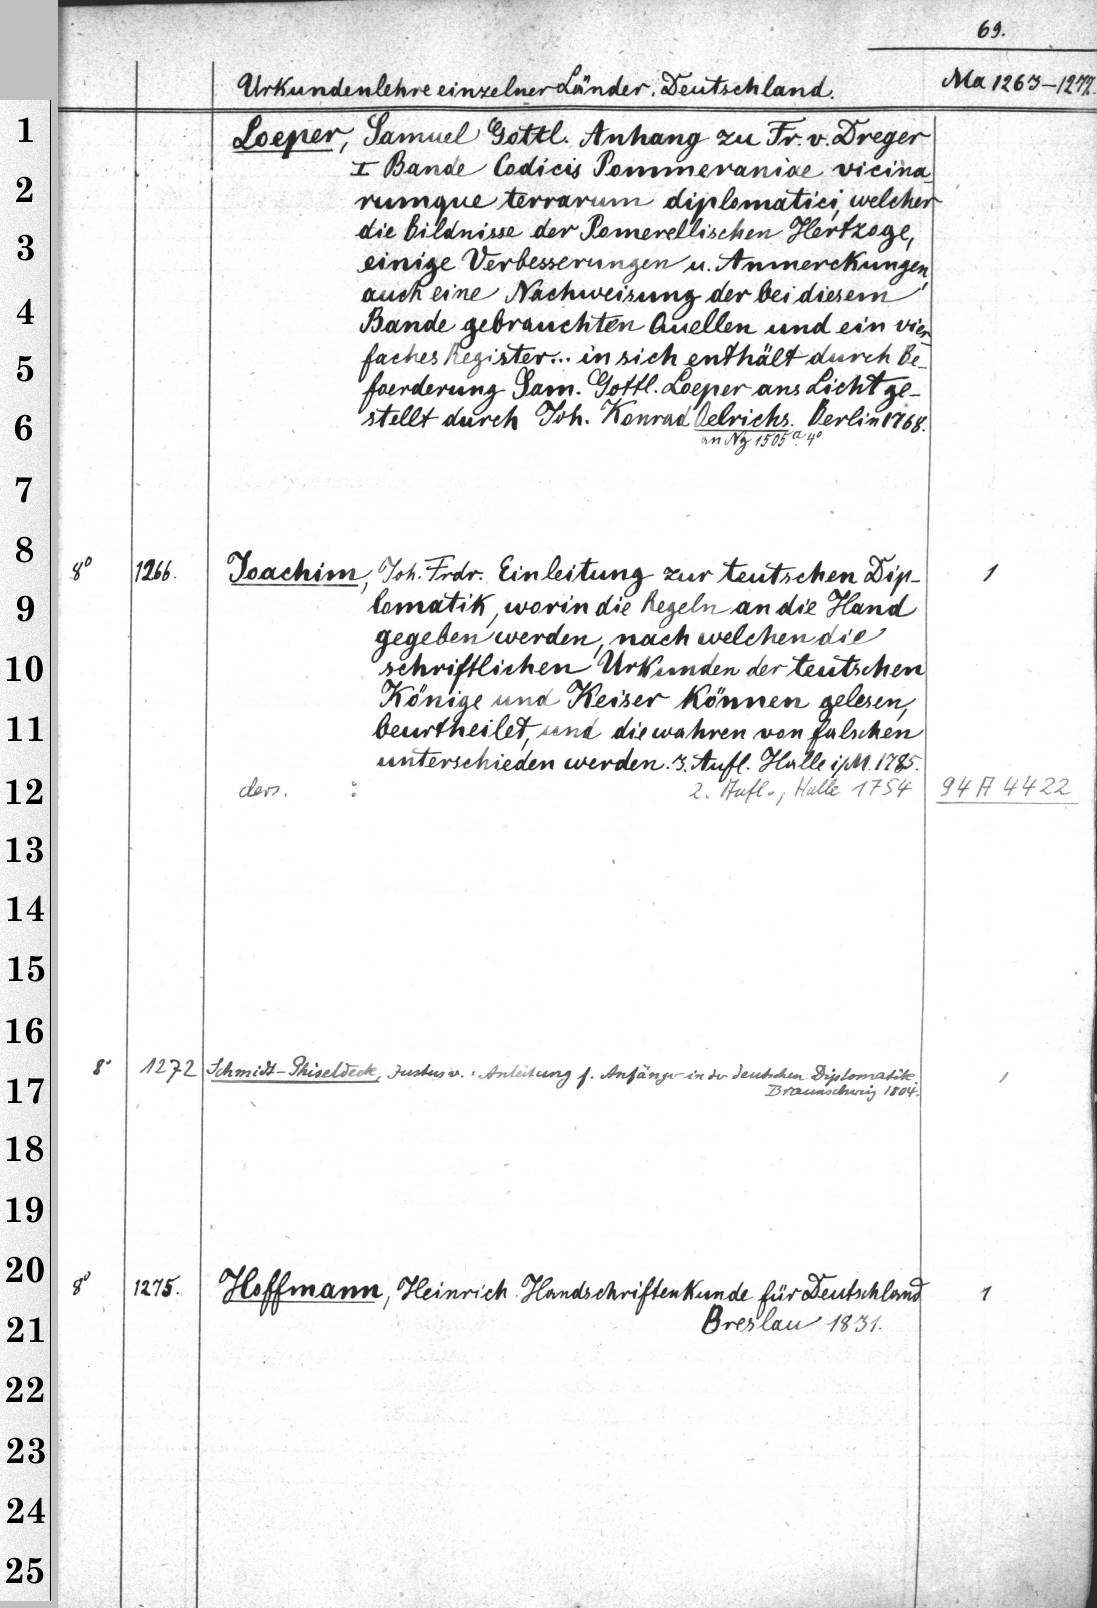 69.
Urkundenlehre einzelner Länder. Deutschland. Ma 1263–1277.
1
2
3
4
5
6
7
8
9
10
11
12
13
14
15
16
17
18
19
20
21
22
23
24
25
Loeper, Samuel Gottl. Anhang zu Fr. v. Dreger
I Bande Codicis Pommeraniae vicina-
rumque terrarum diplomatici, welcher
die Bildnisse der Pomerellischen Hertzoge,
einige Verbesserungen u. Anmerckungen,
auch eine Nachweisung der bei diesem
Bande gebrauchten Quellen und ein vier-
faches Register... in sich enthält durch Be-
foerderung Sam. Gottl. Loeper ans Licht ge-
stellt durch Joh. Konrad Oelrichs. Berlin 1768.
an Ng 1505ª. 4°
8° 1266. Joachim, Joh. Frdr. Einleitung zur teutschen Dip- 1
lomatik, worin die Regeln an die Hand
gegeben werden, nach welchen die
schriftlichen Urkunden der teutschen
Könige und Keiser können gelesen,
beurtheilet, und die wahren von falschen
unterschieden werden. 3. Aufl. Halle i/M. 1785.
ders. : 2. Aufl., Halle 1754 94 A 4422
8° 1272 Schmidt-Phiseldeck, Justus v.: Anleitung f. Anfänger in der deutschen Diplomatik, 1
Braunschweig 1804.
8° 1275. Hoffmann, Heinrich. Handschriftenkunde für Deutschland 1
Breslau 1831.